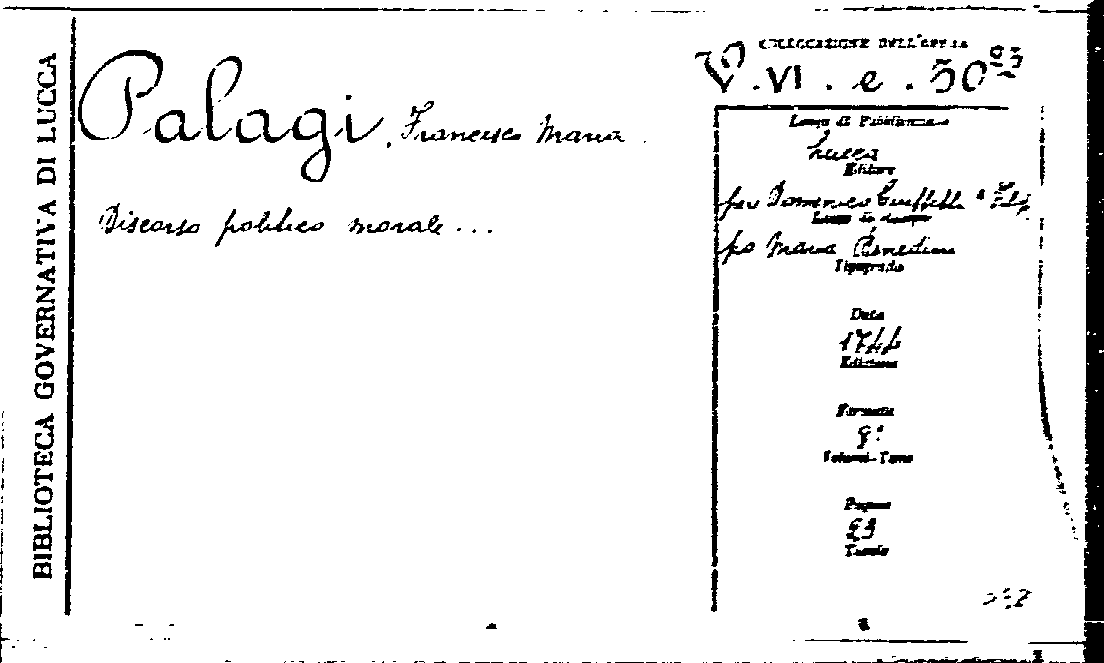 BIBLIOTECA GOVERNATIVA DI LUCCA
Palagi, Francesco Maria.
Discorso politico morale...
COLLOCAZIONE DELL'OPERA
VI. e. 50
Luogo di Pubblicazione
Lucca
Editore
per Domenico Ciuffetti e
Luogo di stampa
Maria Benedini
Tipografo
Data
1744
Edizione
Formato
8°
Volumi-Tomo
Pagine
23
Tavole